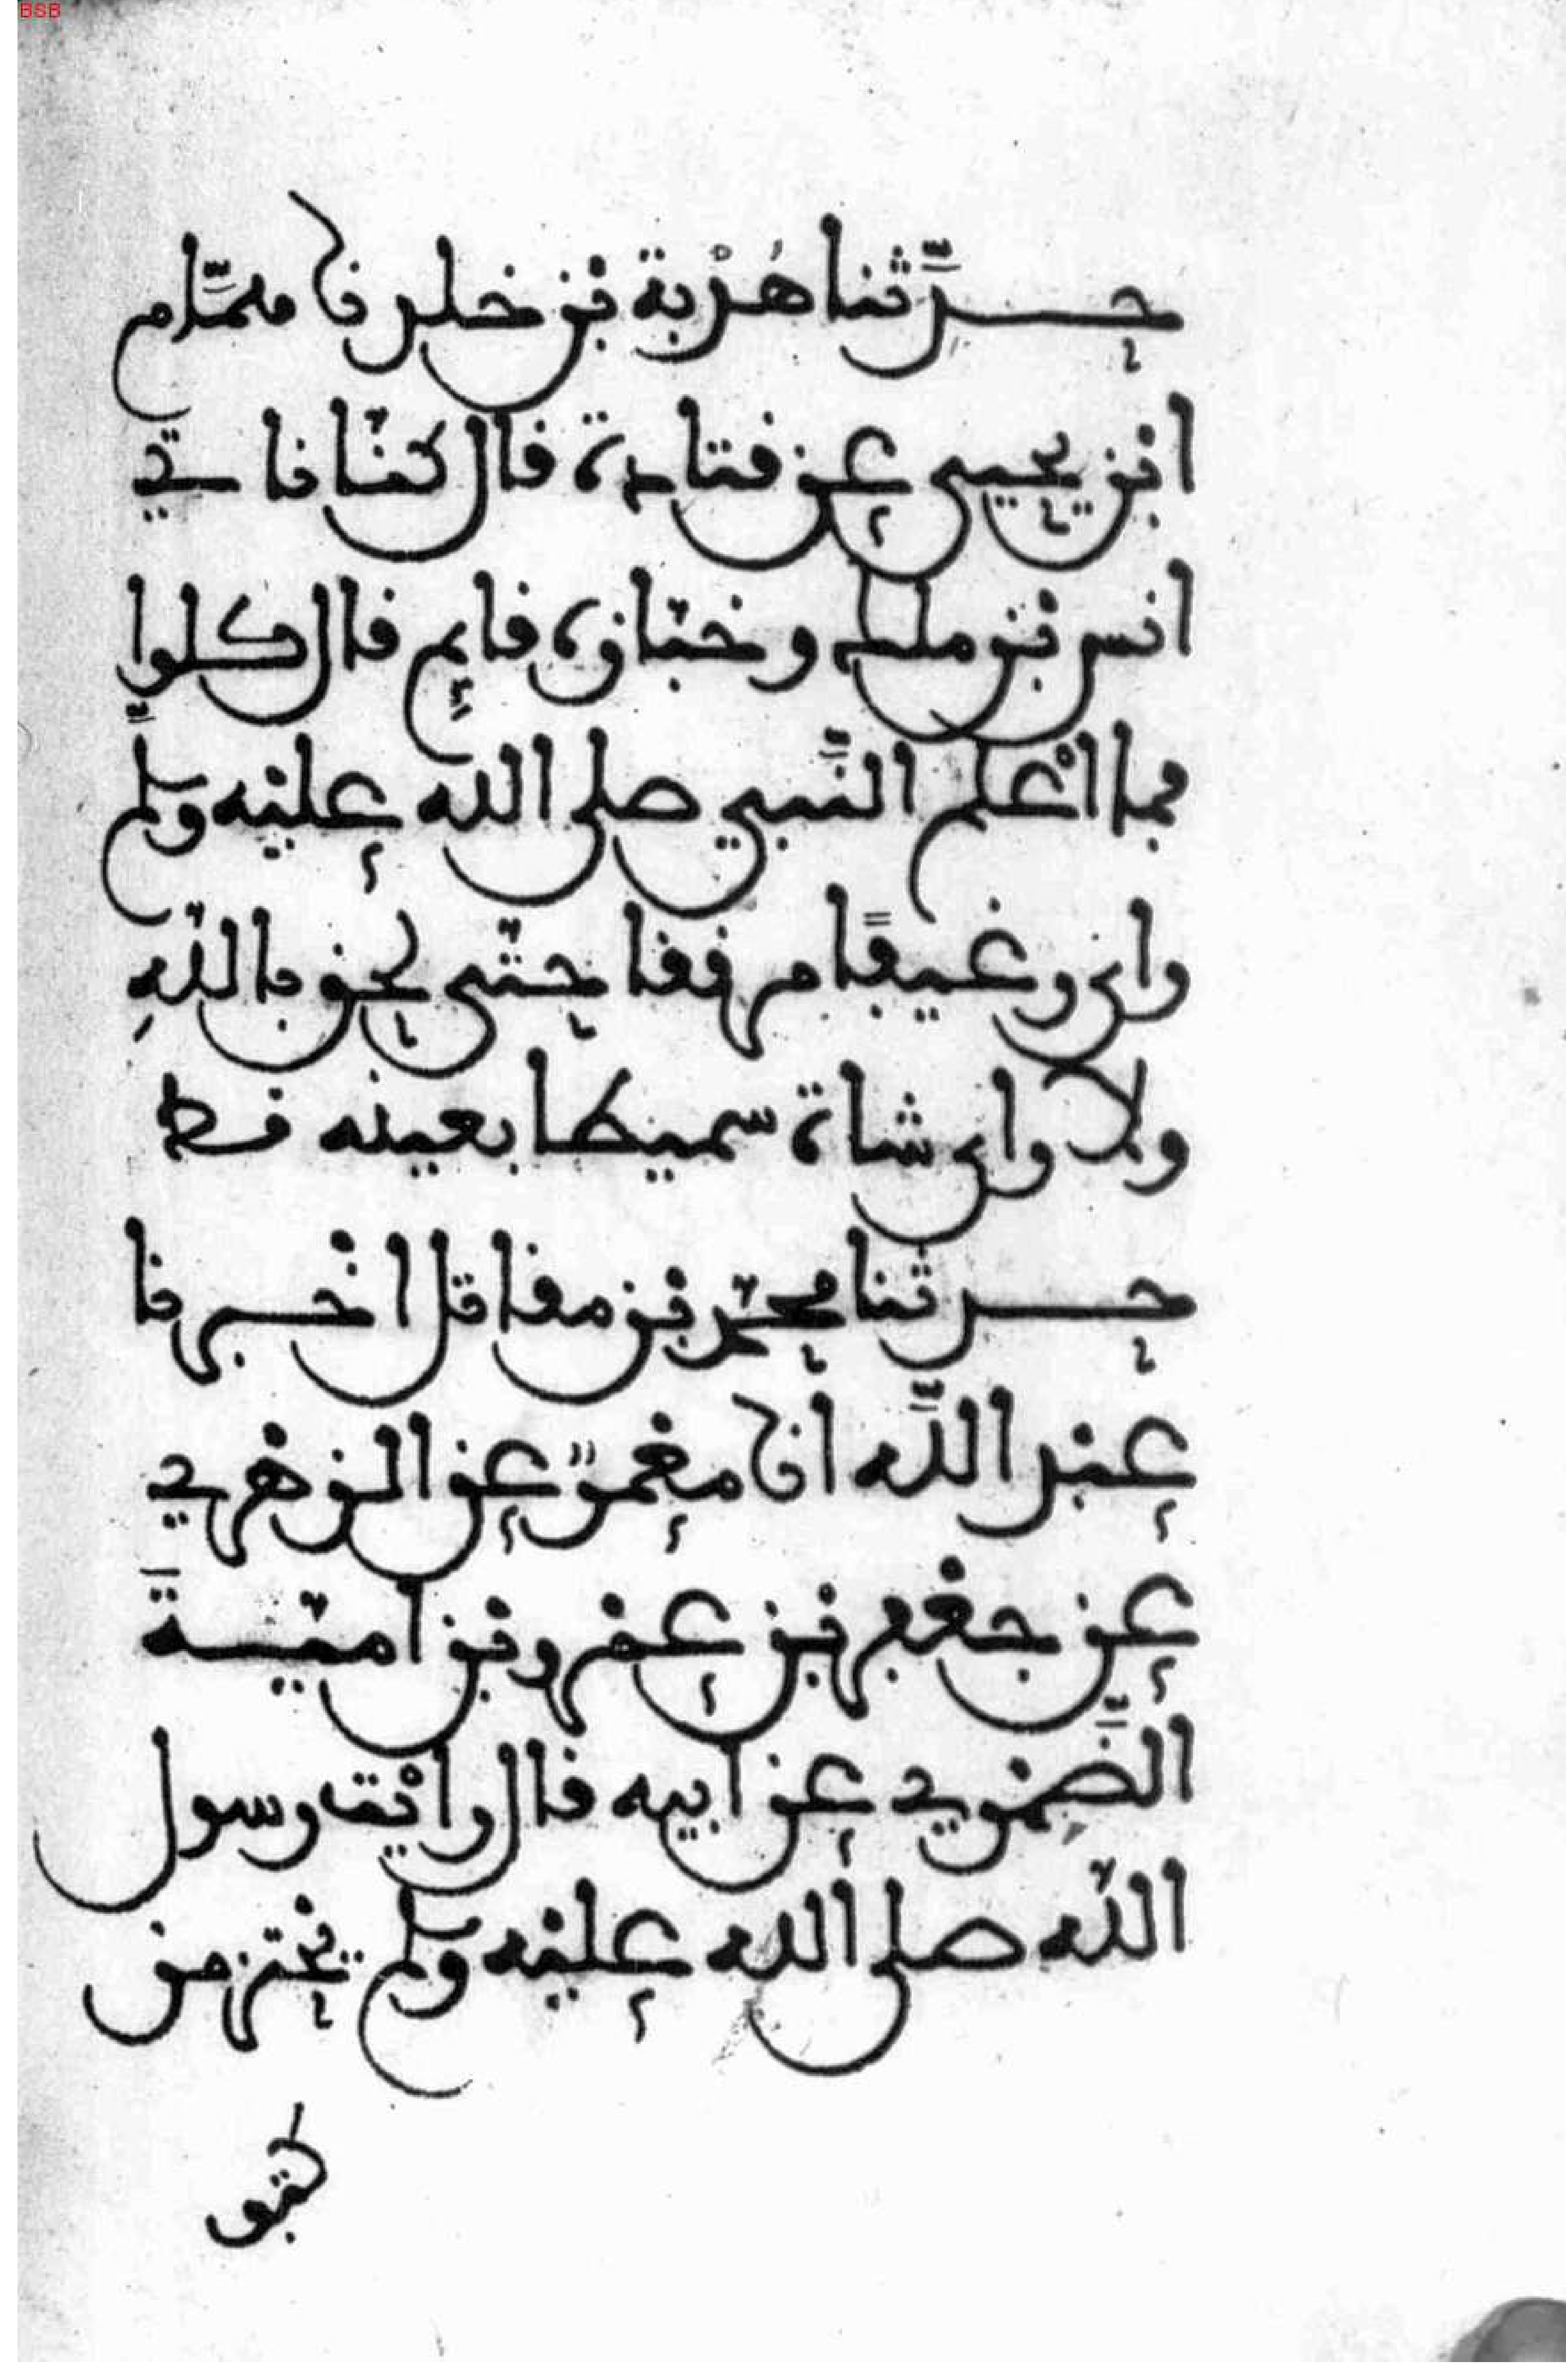 BSB
حدَّثنا هُدْبة بْن خلد نا همَّام
ابْن يحيى عن قتادة قال كنَّا ناتي
انس بْن ملك وخبَّازه قايِم قال كلوا
فما اعْلم النَّبي صلى الله عليْه وسلم
راى رغيفًا مرققا حتَّى لحق باللَّهِ
ولا راى شاة سميطا بعينه قط
حدثنا محمَّد بْن مقاتل اخْبرنا
عبْد اللَّه انا معْمر عن الزهْري
عن جعْفر بْن عمْرو بْن اميَّةَ
الضَّمْري عن ابيه قال رايْت رسول
اللَّه صلى الله عليْه وسلم يحْتز من
كتف